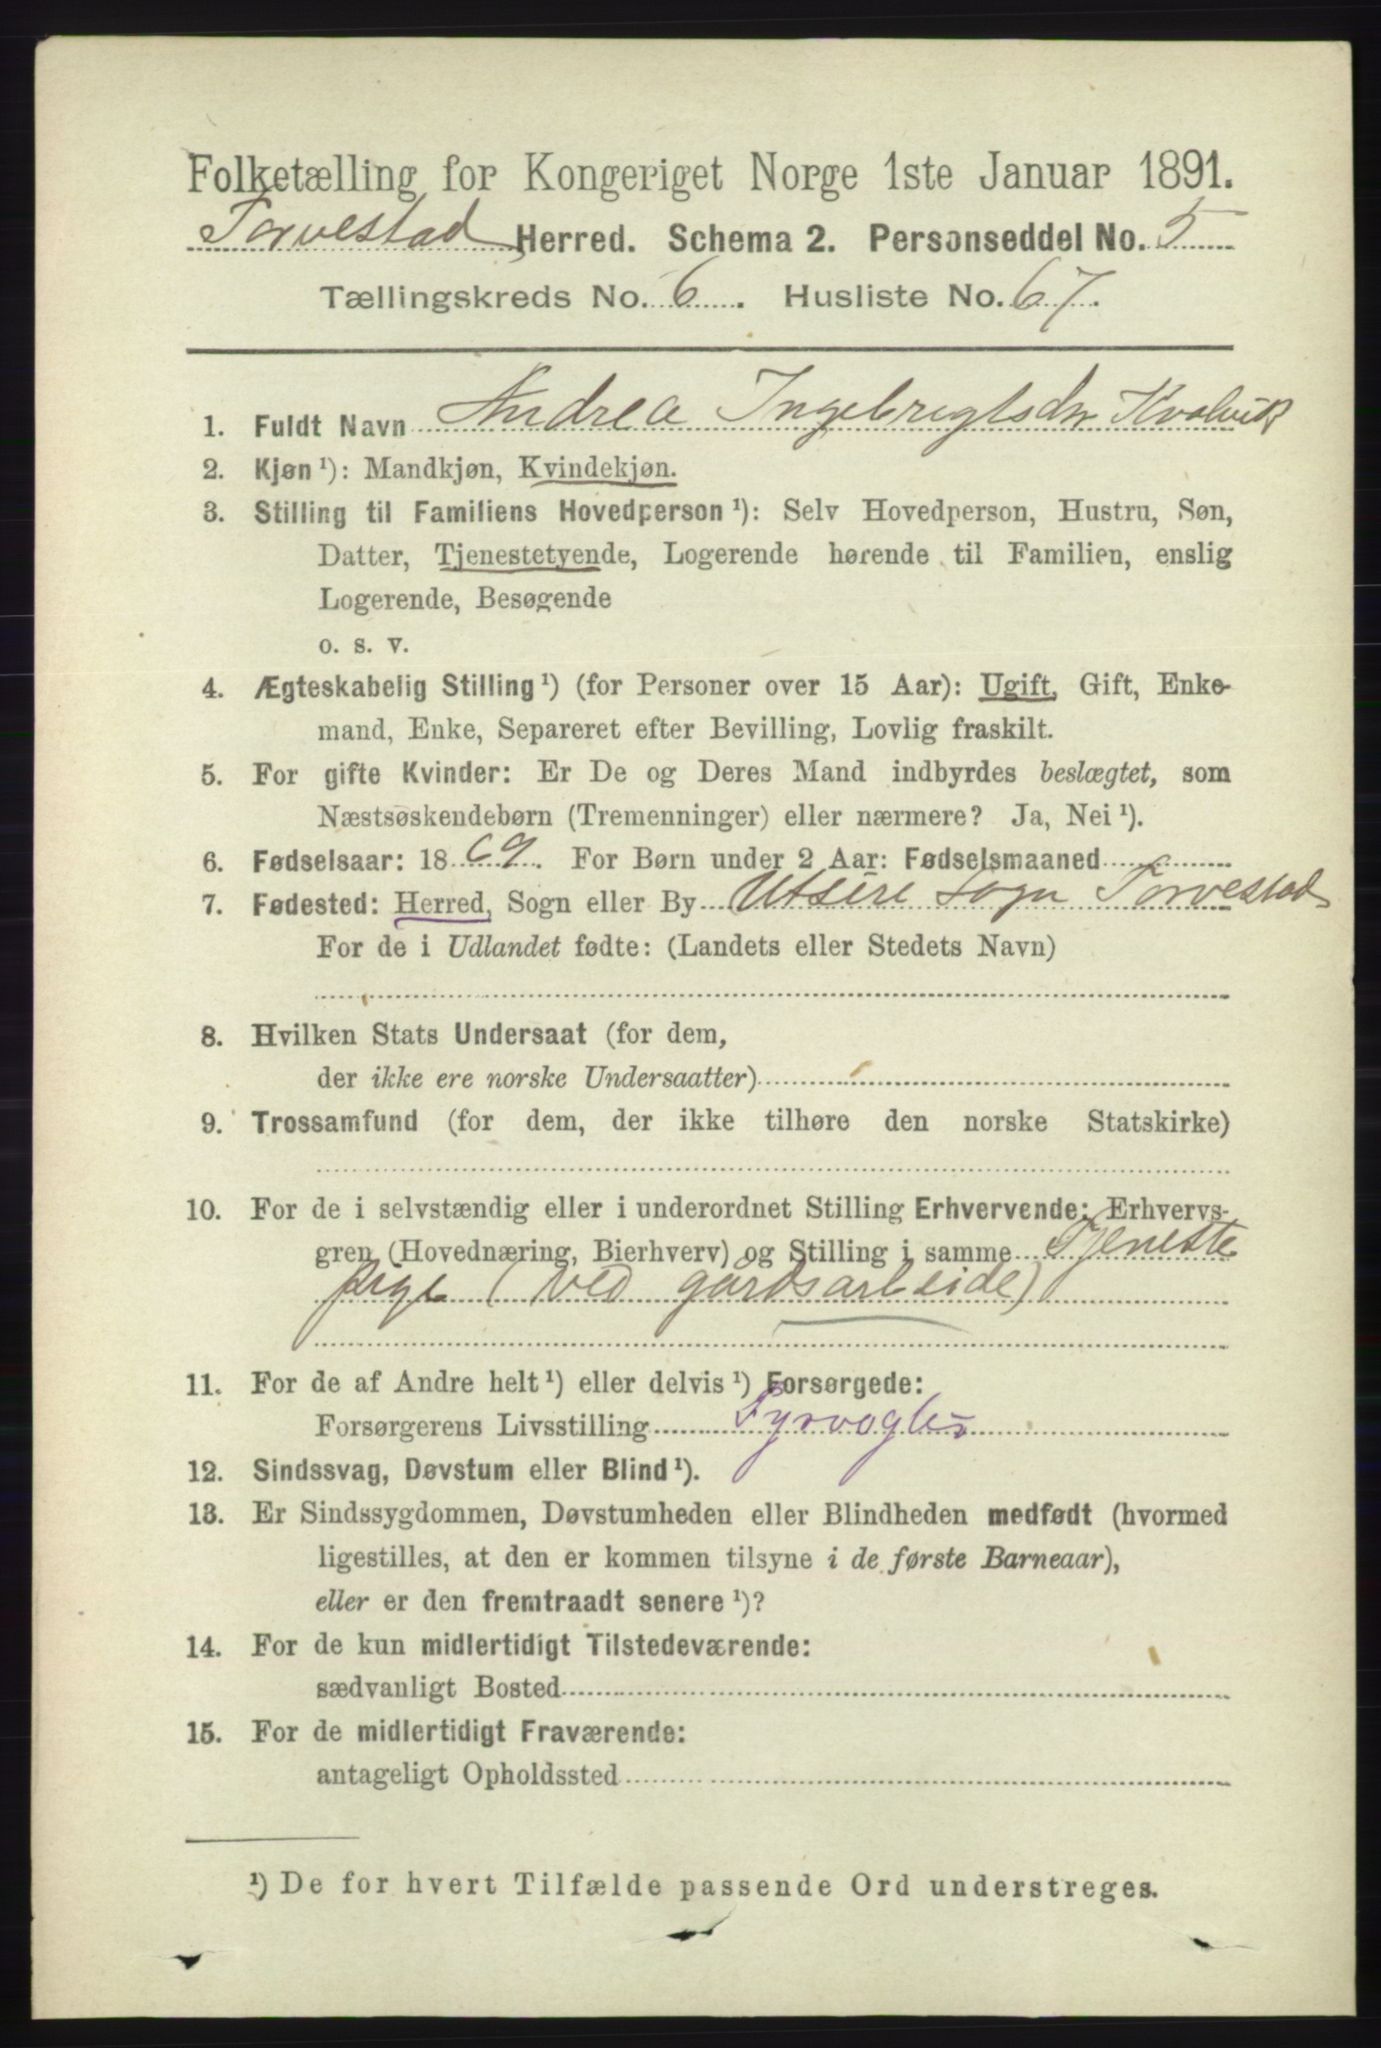 Folketælling for Kongeriget Norge 1ste Januar 1891.
Torvestad Herred. Schema 2. Personseddel No. 5
Tællingskreds No. 6. Husliste No. 67.
1. Fuldt Navn Andrea Ingebrigtsdr Kvalvik
2. Kjøn ¹): Mandkjøn, Kvindekjøn.
3. Stilling til Familiens Hovedperson ¹): Selv Hovedperson, Hustru, Søn,
Datter, Tjenestetyende, Logerende hørende til Familien, enslig
Logerende, Besøgende
o. s. v.
4. Ægteskabelig Stilling ¹) (for Personer over 15 Aar): Ugift, Gift, Enke-
mand, Enke, Separeret efter Bevilling, Lovlig fraskilt.
5. For gifte Kvinder: Er De og Deres Mand indbyrdes beslægtet, som
Næstsøskendebørn (Tremenninger) eller nærmere? Ja, Nei ¹).
6. Fødselsaar: 1869. For Børn under 2 Aar: Fødselsmaaned
7. Fødested: Herred, Sogn eller By Utsire Sogn Torvestad
For de i Udlandet fødte: (Landets eller Stedets Navn)
8. Hvilken Stats Undersaat (for dem,
der ikke ere norske Undersaatter)
9. Trossamfund (for dem, der ikke tilhøre den norske Statskirke)
10. For de i selvstændig eller i underordnet Stilling Erhvervende: Erhvervs-
gren (Hovednæring, Bierhverv) og Stilling i samme Tjeneste
pige (ved gårdsarbeide)
11. For de af Andre helt ¹) eller delvis ¹) Forsørgede:
Forsørgerens Livsstilling Fyrvogter
12. Sindssvag, Døvstum eller Blind ¹).
13. Er Sindssygdommen, Døvstumheden eller Blindheden medfødt (hvormed
ligestilles, at den er kommen tilsyne i de første Barneaar),
eller er den fremtraadt senere ¹)?
14. For de kun midlertidigt Tilstedeværende:
sædvanligt Bosted
15. For de midlertidigt Fraværende:
antageligt Opholdssted
¹) De for hvert Tilfælde passende Ord understreges.